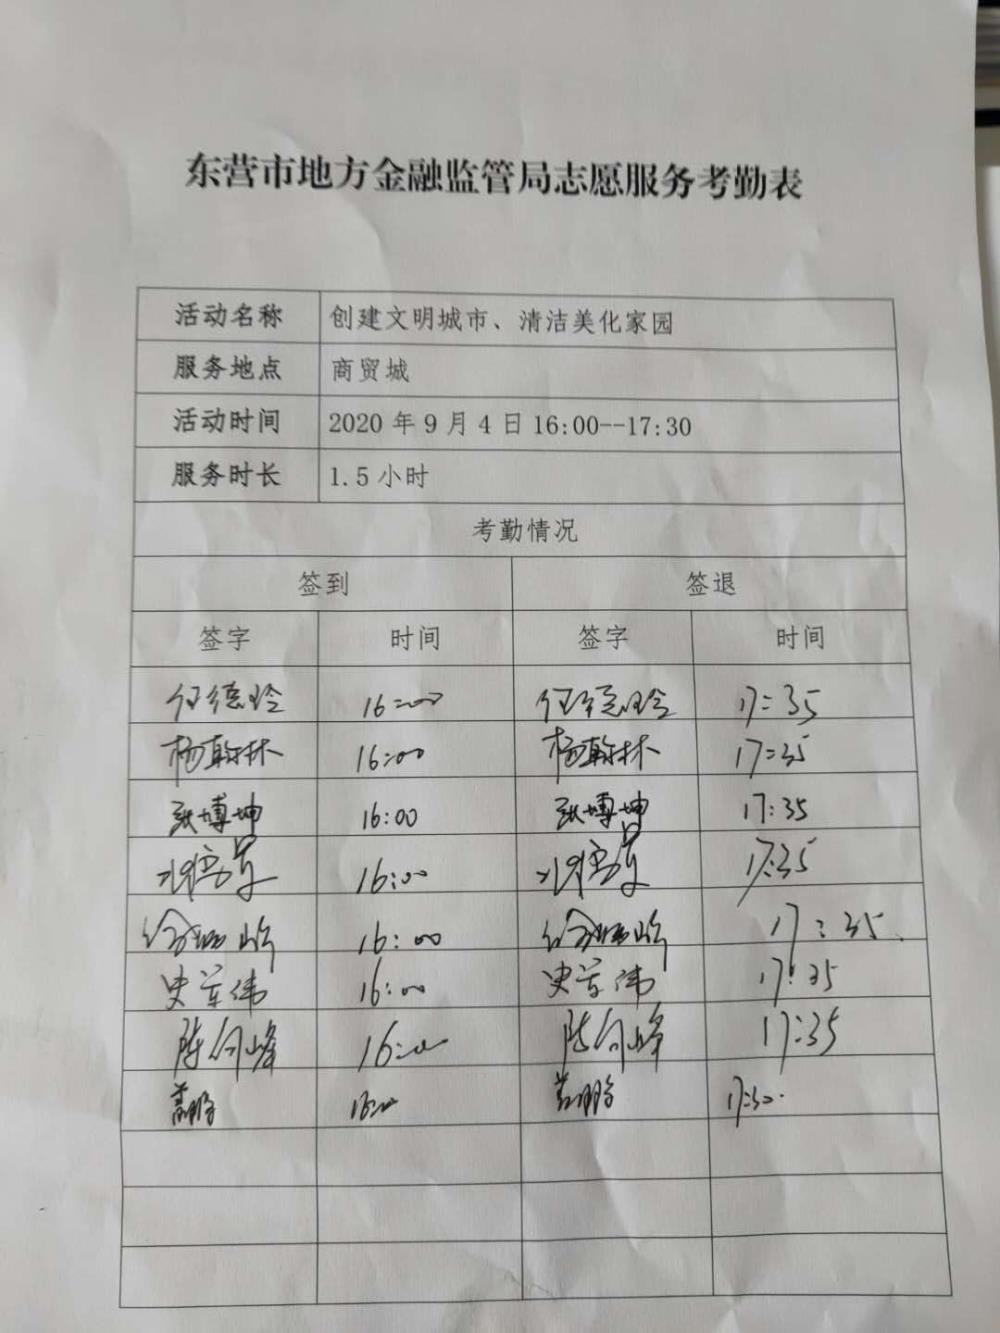 东营市地方金融监管局志愿服务考勤表
活动名称 创建文明城市、清洁美化家园
服务地点 商贸城
活动时间 2020 年 9 月 4 日 16:00--17:30
服务时长 1.5 小时
考勤情况
签到 签退
签字 时间 签字 时间
任德玲 16:00 任德玲 17:35
杨翰林 16:00 杨翰林 17:35
张博坤 16:00 张博坤 17:35
16:00 17:35
16:00 17:35
史军伟 16:00 史军伟 17:35
陈向峰 16:00 陈向峰 17:35
16:00 17:30